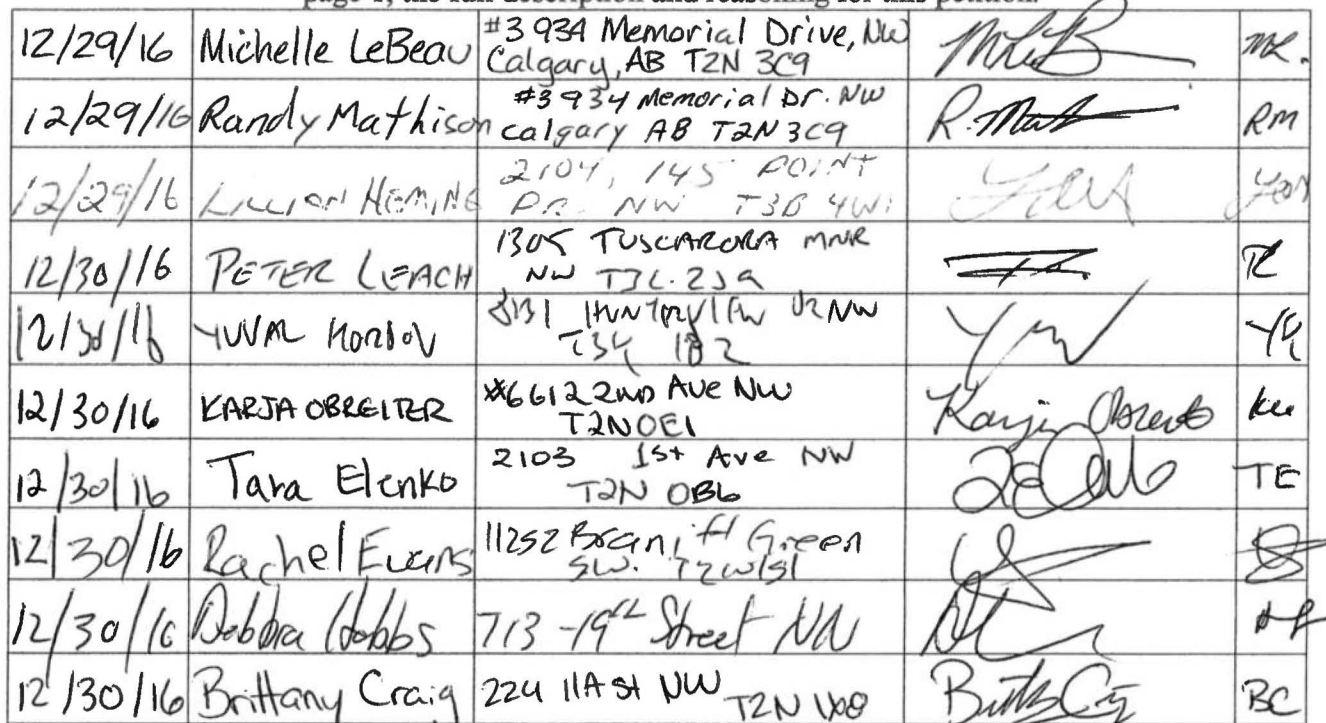 page 1, the full description and reasoning for this petition.
12/29/16 Michelle LeBeau #3 934 Memorial Drive, NW
Calgary, AB T2N 3C9 ML.
12/29/16 Randy Mathison #3 934 Memorial Dr. NW
Calgary AB T2N 3C9 R. RM
12/29/16 2104, 145 POINT
DR. NW T3B 4W1
12/30/16 PETER LEACH 1305 TUSCARORA MNR
NW T3L 2J9
12/30/16 YUVAL NW
12/30/16 KARJA OBREITER #6612 2ND AVE NW
T2N0E1
12/30/16 Tara Elenko 2103 1st Ave NW
T2N 0B6 TE
12/30/16 Rachel Evans 11252 Braniff Green
SW. T2W1S1
12/30/16 Debbra Hobbs 713 - 19th Street NW
12/30/16 Brittany Craig 224 11A St NW
T2N 1X8 BC